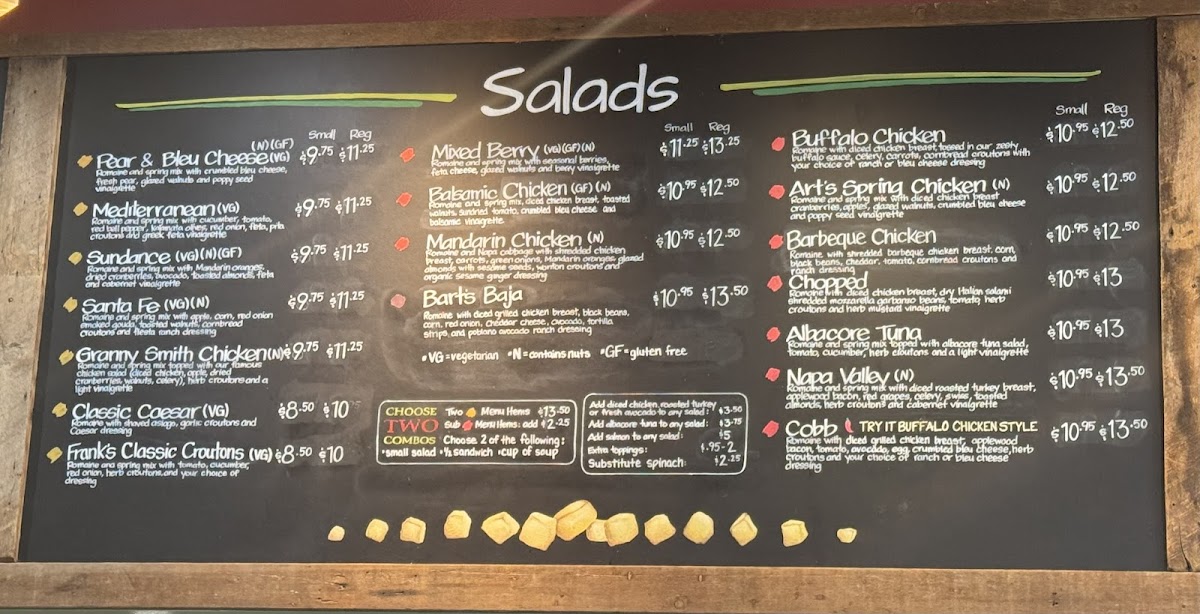 Salads
Small Reg
(N)(GF)
Pear & Bleu Cheese (VG) $9.75 $11.25
Romaine and spring mix with crumbled bleu cheese,
fresh pear, glazed walnuts and poppy seed
vinaigrette
Mediterranean (VG) $9.75 $11.25
Romaine and spring mix with cucumber, tomato,
red bell pepper, kalamata olives, red onion, feta, pita
croutons and greek feta vinaigrette
Sundance (VG)(N)(GF) $9.75 $11.25
Romaine and spring mix with Mandarin oranges,
dried cranberries, avocado, toasted almonds, feta
and cabernet vinaigrette
Santa Fe (VG)(N) $9.75 $11.25
Romaine and spring mix with apple, corn, red onion
smoked gouda, toasted walnuts, cornbread
croutons and fiesta ranch dressing
Granny Smith Chicken (N) $9.75 $11.25
Romaine and spring mix topped with our famous
chicken salad (diced chicken, apple, dried
cranberries, walnuts, celery), herb croutons and a
light vinaigrette
Classic Caesar (VG) $8.50 $10
Romaine with shaved asiago, garlic croutons and
Caesar dressing
Frank's Classic Croutons (VG) $8.50 $10
Romaine and spring mix with tomato, cucumber,
red onion, herb croutons and your choice of
dressing
Small Reg
Mixed Berry (VG)(GF)(N) $11.25 $13.25
Romaine and spring mix with seasonal berries,
feta cheese, glazed walnuts and berry vinaigrette
Balsamic Chicken (GF)(N) $10.95 $12.50
Romaine and spring mix, diced chicken breast, toasted
walnuts, sundried tomato, crumbled bleu cheese and
balsamic vinaigrette
Mandarin Chicken (N) $10.95 $12.50
Romaine and Napa cabbage with shredded chicken
breast, carrots, green onions, Mandarin oranges, glazed
almonds with sesame seeds, wonton croutons and
organic sesame ginger dressing
Bart's Baja $10.95 $13.50
Romaine with diced grilled chicken breast, black beans,
corn, red onion, cheddar cheese, avocado, tortilla
strips, and poblano avocado ranch dressing
•VG=vegetarian •N=contains nuts •GF=gluten free
CHOOSE
TWO
COMBOS
Two Menu Items $13.50
Sub Menu Items: add $2.25
Choose 2 of the following:
•small salad •½ sandwich •cup of soup
Add diced chicken, roasted turkey
or fresh avocado to any salad: $3.50
Add albacore tuna to any salad: $3.75
Add salmon to any salad: $5
Extra toppings: $.95-2
Substitute spinach: $2.25
Small Reg
Buffalo Chicken $10.95 $12.50
Romaine with diced chicken breast, tossed in our zesty
buffalo sauce, celery, carrots, cornbread croutons with
your choice of ranch or bleu cheese dressing
Art's Spring Chicken (N) $10.95 $12.50
Romaine and spring mix with diced chicken breast,
cranberries, apples, glazed walnuts, crumbled bleu cheese
and poppy seed vinaigrette
Barbeque Chicken $10.95 $12.50
Romaine with shredded barbeque chicken breast, corn,
black beans, cheddar, tomato, cornbread croutons and
ranch dressing
Chopped $10.95 $13
Romaine with diced chicken breast, dry Italian salami
shredded mozzarella garbanzo beans, tomato, herb
croutons and herb mustard vinaigrette
Albacore Tuna $10.95 $13
Romaine and spring mix topped with albacore tuna salad,
tomato, cucumber, herb croutons and a light vinaigrette
Napa Valley (N) $10.95 $13.50
Romaine and spring mix with diced roasted turkey breast,
applewood bacon, red grapes, celery, swiss, toasted
almonds, herb croutons and cabernet vinaigrette
Cobb TRY IT BUFFALO CHICKEN STYLE $10.95 $13.50
Romaine with diced grilled chicken breast, applewood
bacon, tomato, avocado, egg, crumbled bleu cheese, herb
croutons and your choice of ranch or bleu cheese
dressing